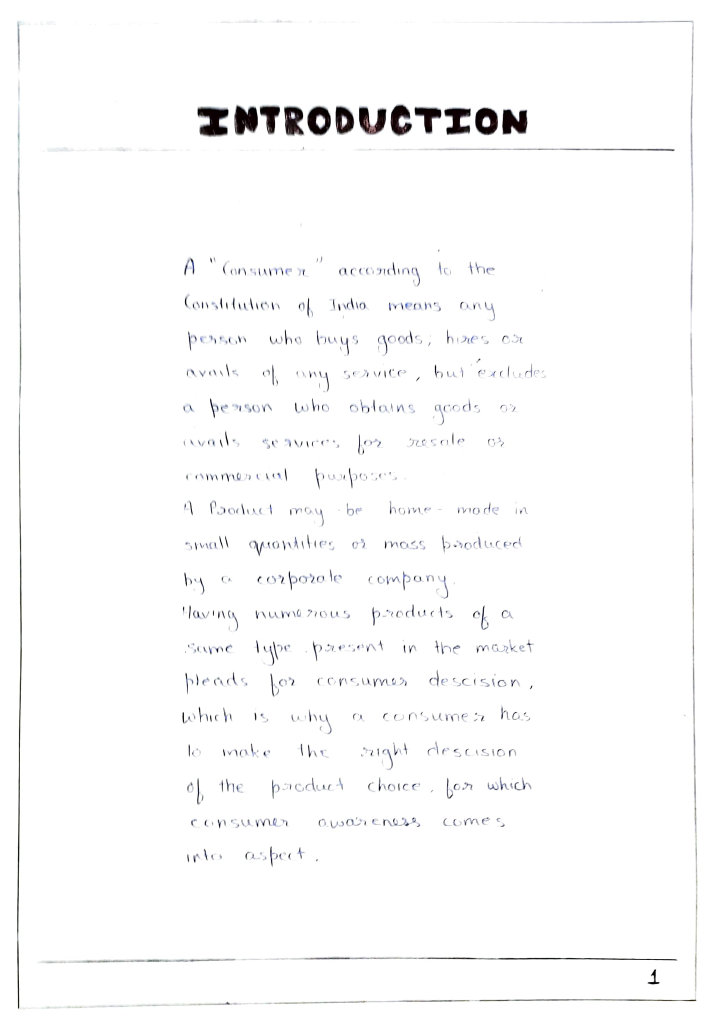 INTRODUCTION
A "Consumer" according to the
Constitution of India means any
person who buys goods, hires or
avails of any service, but excludes
a person who obtains goods or
avails services for resale or
commercial purposes.
A Product may be home-made in
small quantities or mass produced
by a corporate company.
Having numerous products of a
same type present in the market
pleads for consumer descision,
which is why a consumer has
to make the right descision
of the product choice, for which
consumer awareness comes
into aspect.
1